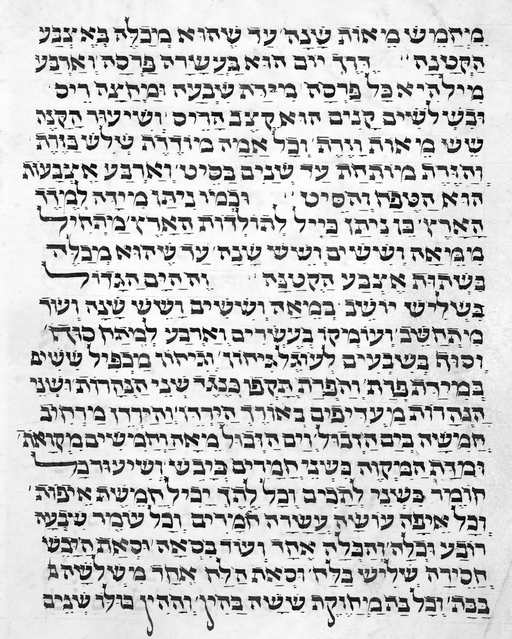 מיחמש מיאות שנה עד שהוא מבלה באיצבע
הקטנה דרך יום הוא בעשירה פרסה וארבע
מיל היא כל פרסה מידת שבעה ומחצה ריס
ובשלשים קנים הוא קצב הריס ושיעור הקנה
שש מיאות וזרת וכל אמה מודדת שלש בזרת
והזרת מותחת עד שנים בסיט וארבע איצבעות
הוא הטפח והסיט וכמו ניתן מידה למדד
הארץ כן ניתן כייל לתולדות הארץ מתחיל
ממאה וששים ושיש שנה עד שהוא מבלה
בשתות איצבע הקטנה וההים הגדול
בשליש יושב במאה וששים ושיש שנה ועוד
מיתחשב ועומקו בעשרים וארבע למתח
וסוד בשבעים לעוגל גיחון וגיחון מכפיל ששים
במידת פרת והפרת הקפו כנגד שני הנהרות ושני
הנהרות מעדיפים באורך הירדן והירדן מרחוב
חמישה בים הגבול וים הגבול מאה וחמישים מקואת
ומדת המקוה בשני חמרים ביבש ושיעור כל
חומר בשני לתכים וכל לתך יכיל חמשת איפות
וכל איפה עושיה עשרה חמרים וכל עומר שבעה
רובע וכלה והכלה אחד ועוד בסאה וסאת היבש
חסירה שליש בלח וסאת הלח אחד משלישה
ככה וכל בת מחוקת ששיה בהין וההין כולו שנים